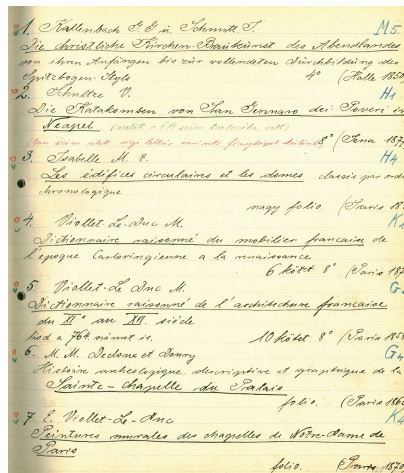 1. Kallenbach G. G. u. Schmitt J. M5.
Die christliche Kirchen-Baukunst des Abendlandes
von ihren Anfängen bis zur vollendeten Durchbildung des
Spitzbogen-Styls 4° (Halle 1850
2. Schultze V. H1.
Die Katakomben von San Gennaro dei Poveri in
Neapel
8° (Jena 187
3. Isabelle M. E. H4
Les édifices circulaires et les domes classés par ordre
chronologique
nagy folio. (Paris 18
4. Viollet-Le-Duc M. K1
Dictionnaire raisonné du mobilier francaise de
l'epoque Carloringienne a la renaissance
6 kötet 8° (Paris 187
5. Viollet-Le Duc M. G
Dictionnaire raisonné de l'architecture francaise
du XI° au XVI. siécle
10 kötet 8° (Paris 185
6. M. M. Declome et Doury G4
Histoire archeologique, descriptive et graphique de la
Sainte-chapelle du Palais
folio. (Paris 186
7. E. Viollet-Le-Duc K4
Peintures murales des chapelles de Notre-Dame de
Paris
folio. (Paris 1870